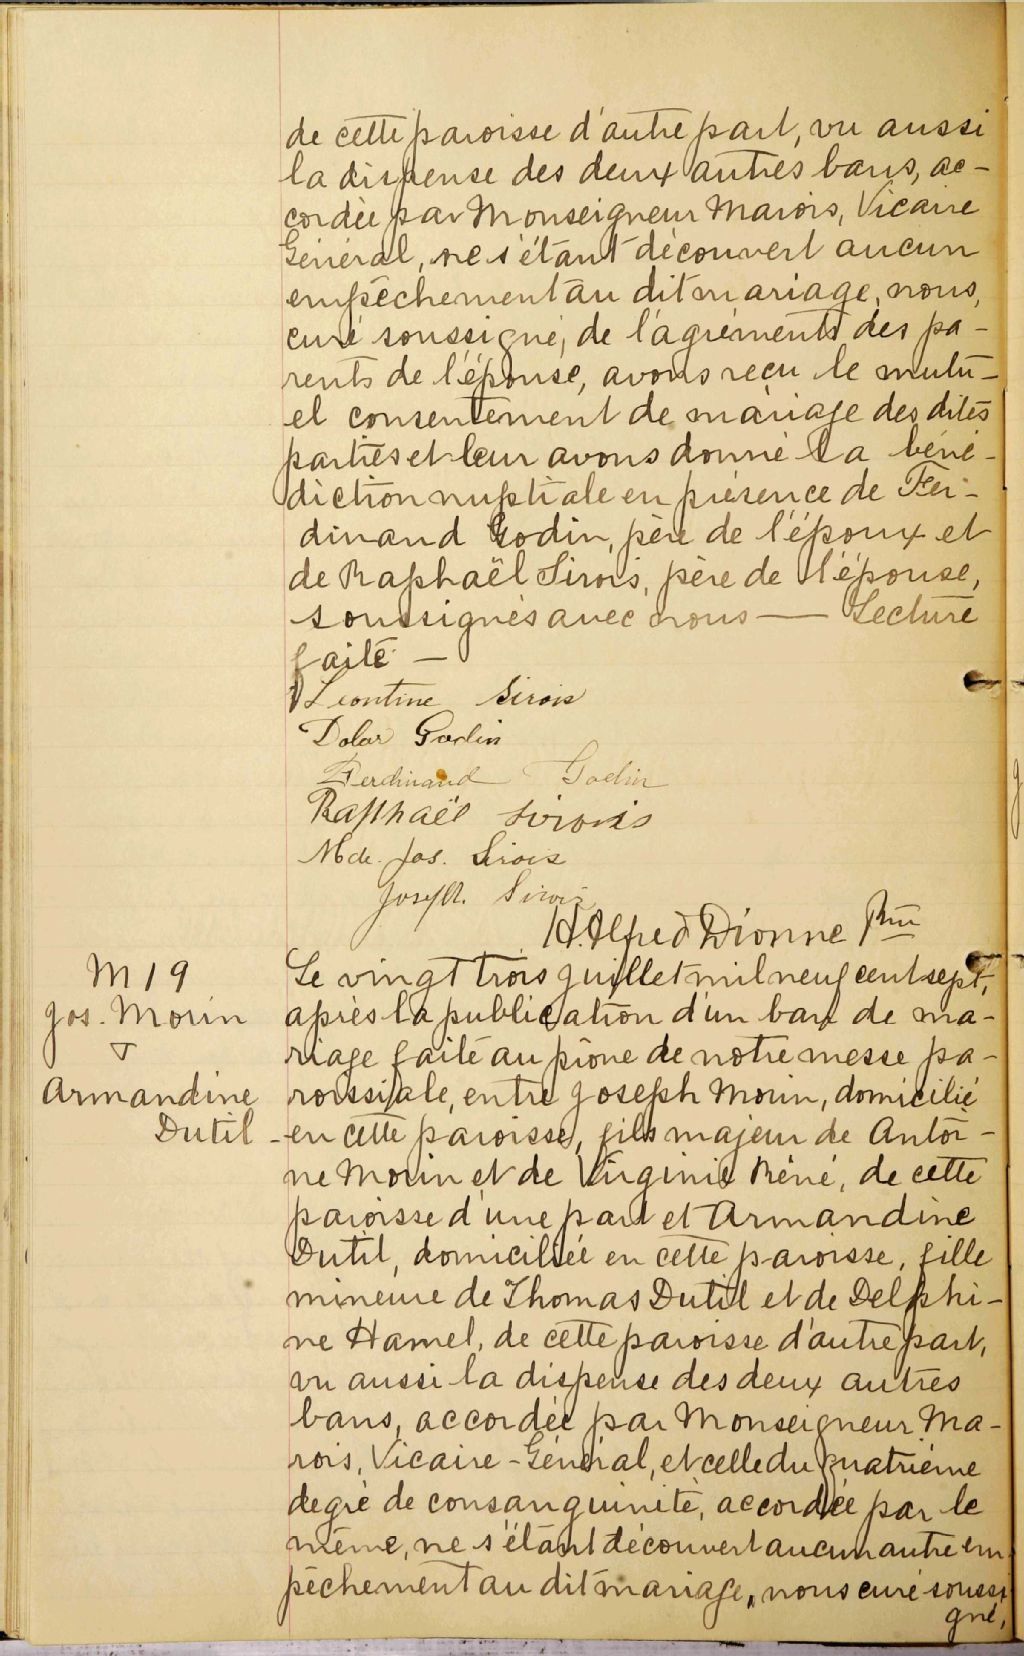 de cette paroisse d'autre part, vu aussi
la dispense des deux autres bans, ac-
cordée par Monseigneur Marois, Vicaire
Général, ne s'étant découvert aucun
empêchement au dit mariage, nous,
curé soussigné, de l'agréments des pa-
rents de l'épouse, avons reçu le mutu-
el consentement de mariage des dites
parties et leur avons donné la béné-
diction nuptiale en présence de Fer-
dinand Godin, père de l'époux et
de Raphaël Sirois, père de l'épouse,
soussignés avec nous — Lecture
faite —
Léontine Sirois
Dolor Godin
Ferdinand Godin
Raphaël Sirois
Mde. Jos. Sirois
Joseph. Sirois
H. Alfred Dionne Ptre
M 19
Jos. Morin
&
Armandine
Dutil -
Le vingt trois juillet mil neuf cent sept,
après la publication d'un ban de ma-
riage faite au prône de notre messe pa-
roissiale, entre Joseph Morin, domicilié
en cette paroisse, fils majeur de Antoi-
ne Morin et de Virginie Réné, de cette
paroisse d'une part et Armandine
Dutil, domiciliée en cette paroisse, fille
mineure de Thomas Dutil et de Delphi-
ne Hamel, de cette paroisse d'autre part,
vu aussi la dispense des deux autres
bans, accordée par Monseigneur Ma-
rois, Vicaire-Général, et celle du quatrième
degré de consanguinité, accordée par le
même, ne s'étant découvert aucun autre em
pêchement au dit mariage, nous curé soussi
gné,